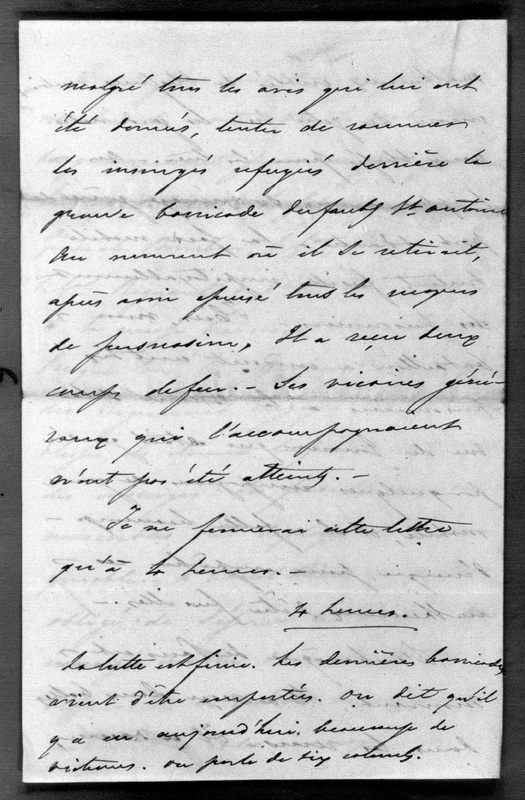 malgré tous les avis qui lui ont
été donnés, tenter de ramener
les insurgés refugiés derrière la
grande barricade du faubg St Antoine
Au moment où il se retirait,
après avoir épuisé tous les moyens
de persuasion, Il a reçu deux
coups de feu. — Ses vicaires géné-
raux qui l'accompagnaient
n'ont pas été atteints. —
Je ne fermerai cette lettre
qu'à 4 heures. —
4 heures.
La lutte est finie. Les dernières barricades
vient d'être emportées. on dit qu'il
y a eu aujourd'hui beaucoup de
victimes. on parle de six colonels.